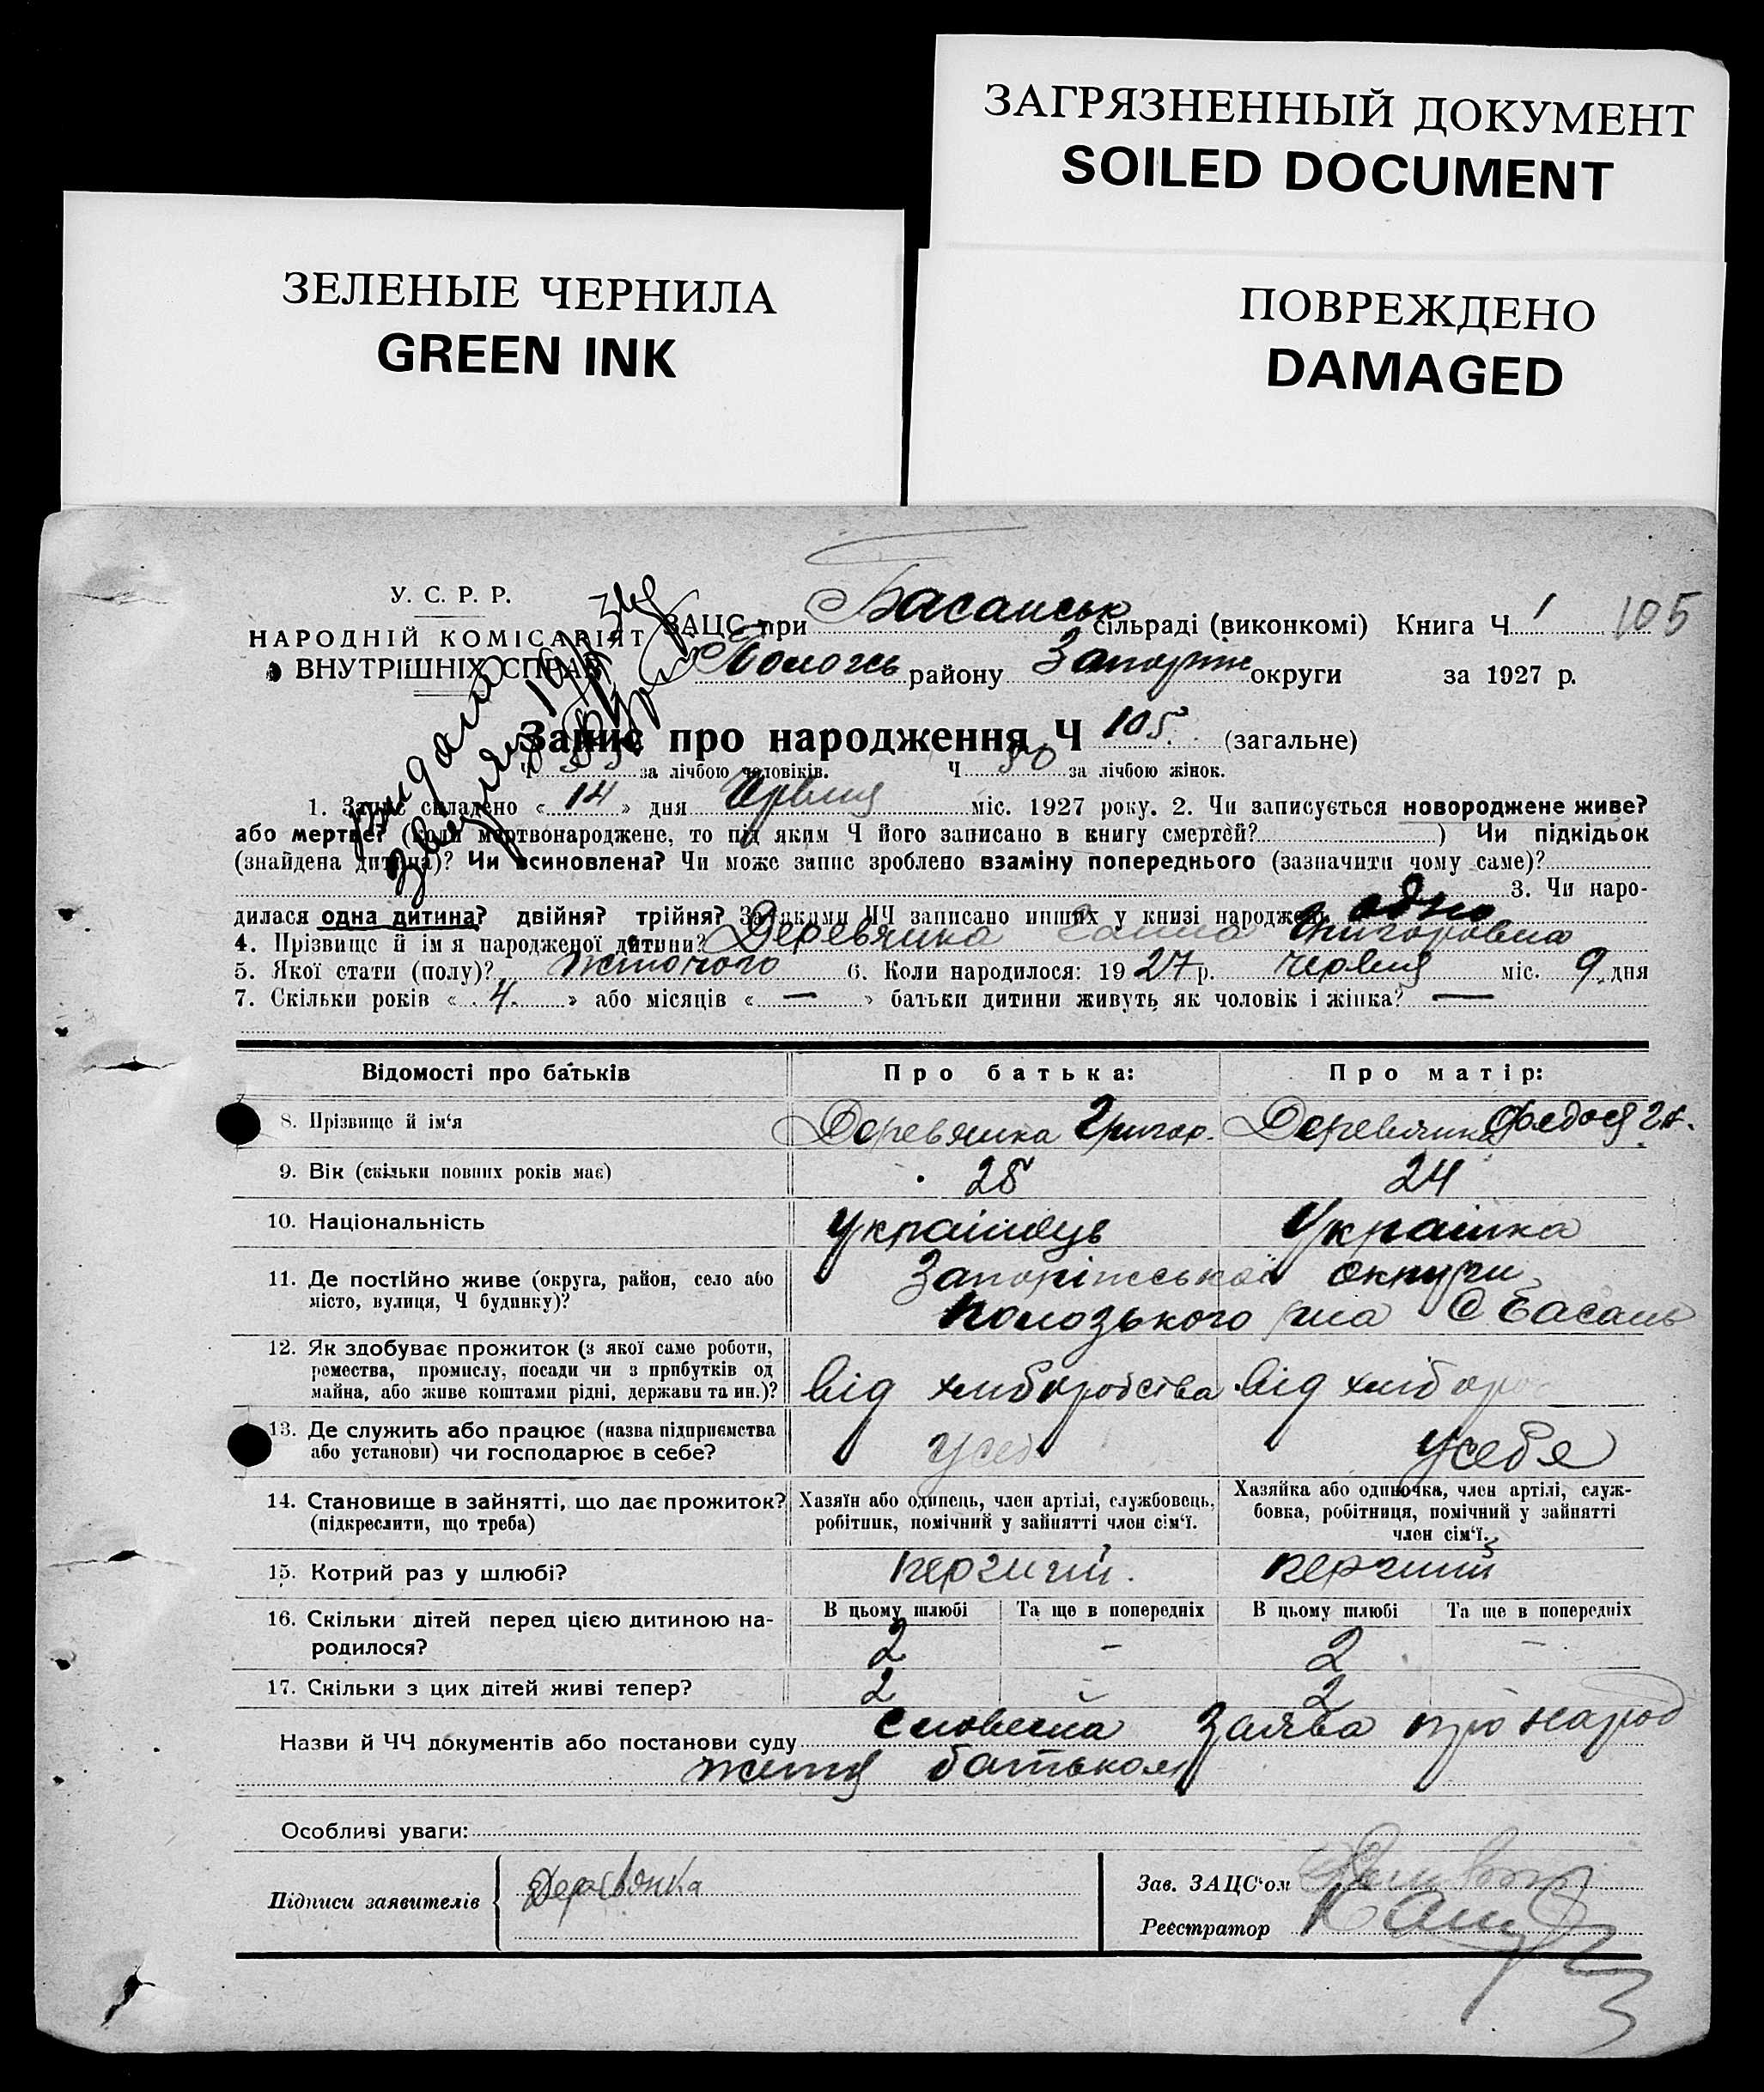 ЗАГРЯЗНЕННЫЙ ДОКУМЕНТ
SOILED DOCUMENT
ЗЕЛЕНЫЕ ЧЕРНИЛА
GREEN INK
ПОВРЕЖДЕНО
DAMAGED
У. С. Р. Р.
НАРОДНІЙ КОМІСАРІЯТ
ВНУТРІШНІХ СПРАВ
ЗАЦС при Басанськ сільраді (виконкомі) Книга Ч 1 105
Пологь району Запоріж округи за 1927 р.
Запис про народження Ч 105 (загальне)
Ч 55 за лічбою чоловіків. Ч 50 за лічбою жінок.
1. Запис складено « 14 » дня Червня міс. 1927 року. 2. Чи записується новороджене живе?
або мертве? (коли мертвонароджене, то під яким Ч його записано в книгу смертей? ) Чи підкідьок
(знайдена дитина)? Чи всиновлена? Чи може запис зроблено взаміну попереднього (зазначити чому саме)?
3. Чи наро-
дилася одна дитина? двійня? трійня? За якими ЧЧ записано инших у книзі народжень одно
4. Прізвище й ім'я народженої дитини? Деревянка Ганна Григоровна
5. Якої стати (полу)? жіночого 6. Коли народилося: 19 27 р. червня міс. 9 дня
7. Скільки років « 4 » або місяців « — » батьки дитини живуть як чоловік і жінка? —
Відомості про батьків Про батька: Про матір:
8. Прізвище й ім'я Деревянка Григор. Деревянка Федося
9. Вік (скільки повних років має) 28 24
10. Національність Українець Українка
11. Де постійно живе (округа, район, село або
місто, вулиця, Ч будинку)?
Запоріжської округи
Полозького р-на С Басань
12. Як здобуває прожиток (з якої саме роботи,
ремества, промислу, посади чи з прибутків од
майна, або живе коштами рідні, держави та ин.)?
від хліборобства від хлібороб
13. Де служить або працює (назва підприємства
або установи) чи господарює в себе?
усеб усебя
14. Становище в зайнятті, що дає прожиток?
(підкреслити, що треба)
Хазяїн або одинець, член артілі, службовець,
робітник, помічний у зайнятті член сім'ї.
Хазяйка або одиночка, член артілі, служ-
бовка, робітниця, помічний у зайнятті
член сім'ї.
15. Котрий раз у шлюбі? перчий. перчий
16. Скільки дітей перед цією дитиною на-
родилося?
В цьому шлюбі Та ще в попередніх В цьому шлюбі Та ще в попередніх
2 – 2 –
17. Скільки з цих дітей живі тепер? 2 – 2
Назви й ЧЧ документів або постанови суду Словесна Заява про народ
жиння батьком
Особливі уваги:
Підписи заявителів Деревянка
Зав. ЗАЦС'ом
Реєстратор